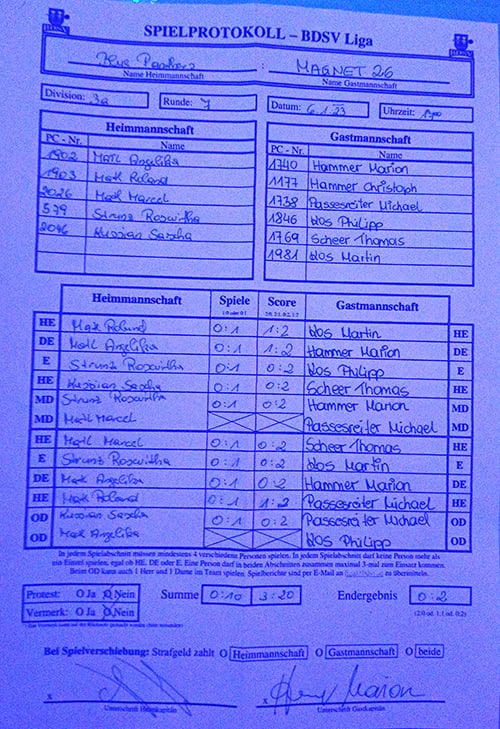 SPIELPROTOKOLL – BDSV Liga
: MAGNET 26
Name Heimmannschaft Name Gastmannschaft
Division: 3a Runde: 7 Datum: 6.1.23 Uhrzeit:
Heimmannschaft Gastmannschaft
PC - Nr. Name PC - Nr. Name
1902 Matl Angelika 1740 Hammer Marion
1903 Matl Roland 1177 Hammer Christoph
2026 Matl Marcel 1738 Passesreiter Michael
579 Strunz Roswitha 1846 Wos Philipp
2046 Kussian Sascha 1769 Scheer Thomas
1981 Wos Martin
Heimmannschaft Spiele Score Gastmannschaft
HE Matl Roland 0:1 1:2 Wos Martin HE
DE Matl Angelika 0:1 1:2 Hammer Marion DE
E Strunz Roswitha 0:1 0:2 Wos Philipp E
HE Kussian Sascha 0:1 0:2 Scheer Thomas HE
MD Strunz Roswitha 0:1 0:2 Hammer Marion MD
MD Matl Marcel Passesreiter Michael MD
HE Matl Marcel 0:1 0:2 Scheer Thomas HE
E Strunz Roswitha 0:1 0:2 Wos Martin E
DE Matl Angelika 0:1 0:2 Hammer Marion DE
HE Matl Roland 0:1 1:2 Passesreiter Michael HE
OD Kussian Sascha 0:1 0:2 Passesreiter Michael OD
OD Matl Angelika Wos Philipp OD
In jedem Spielabschnitt müssen mindestens 4 verschiedene Personen spielen. In jedem Spielabschnitt darf keine Person mehr als
ein Einzel spielen, egal ob HE, DE oder E. Eine Person darf in beiden Abschnitten zusammen maximal 3-mal zum Einsatz kommen.
Beim OD kann auch 1 Herr und 1 Dame im Team spielen. Spielberichte sind per E-Mail an zu übermitteln.
Protest: O Ja O Nein Summe 0:10 3:20 Endergebnis 0:2
Vermerk: O Ja O Nein (2:0 od. 1:1 od. 0:2)
Bei Spielverschiebung: Strafgeld zahlt O Heimmannschaft O Gastmannschaft O beide
x x Marion
Unterschrift Heimkapitän Unterschrift Gastkapitän